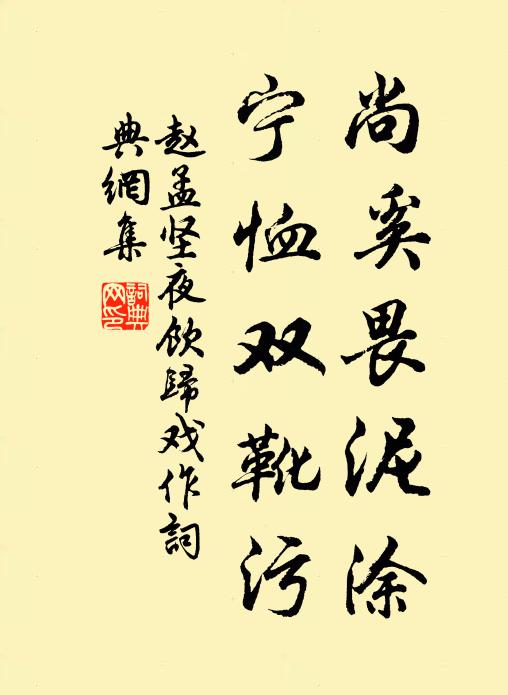 尚奚畏泥涂
宁恤双靴污
赵孟坚夜饮歸戏作詞
典網集
詞典网印